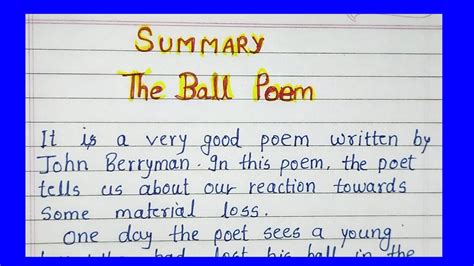 SUMMARY
The Ball Poem
It is a very good poem written by
John Berryman. In this poem, the poet
tells us about our reaction towards
some material loss.
One day the poet sees a young
had lost his ball in the